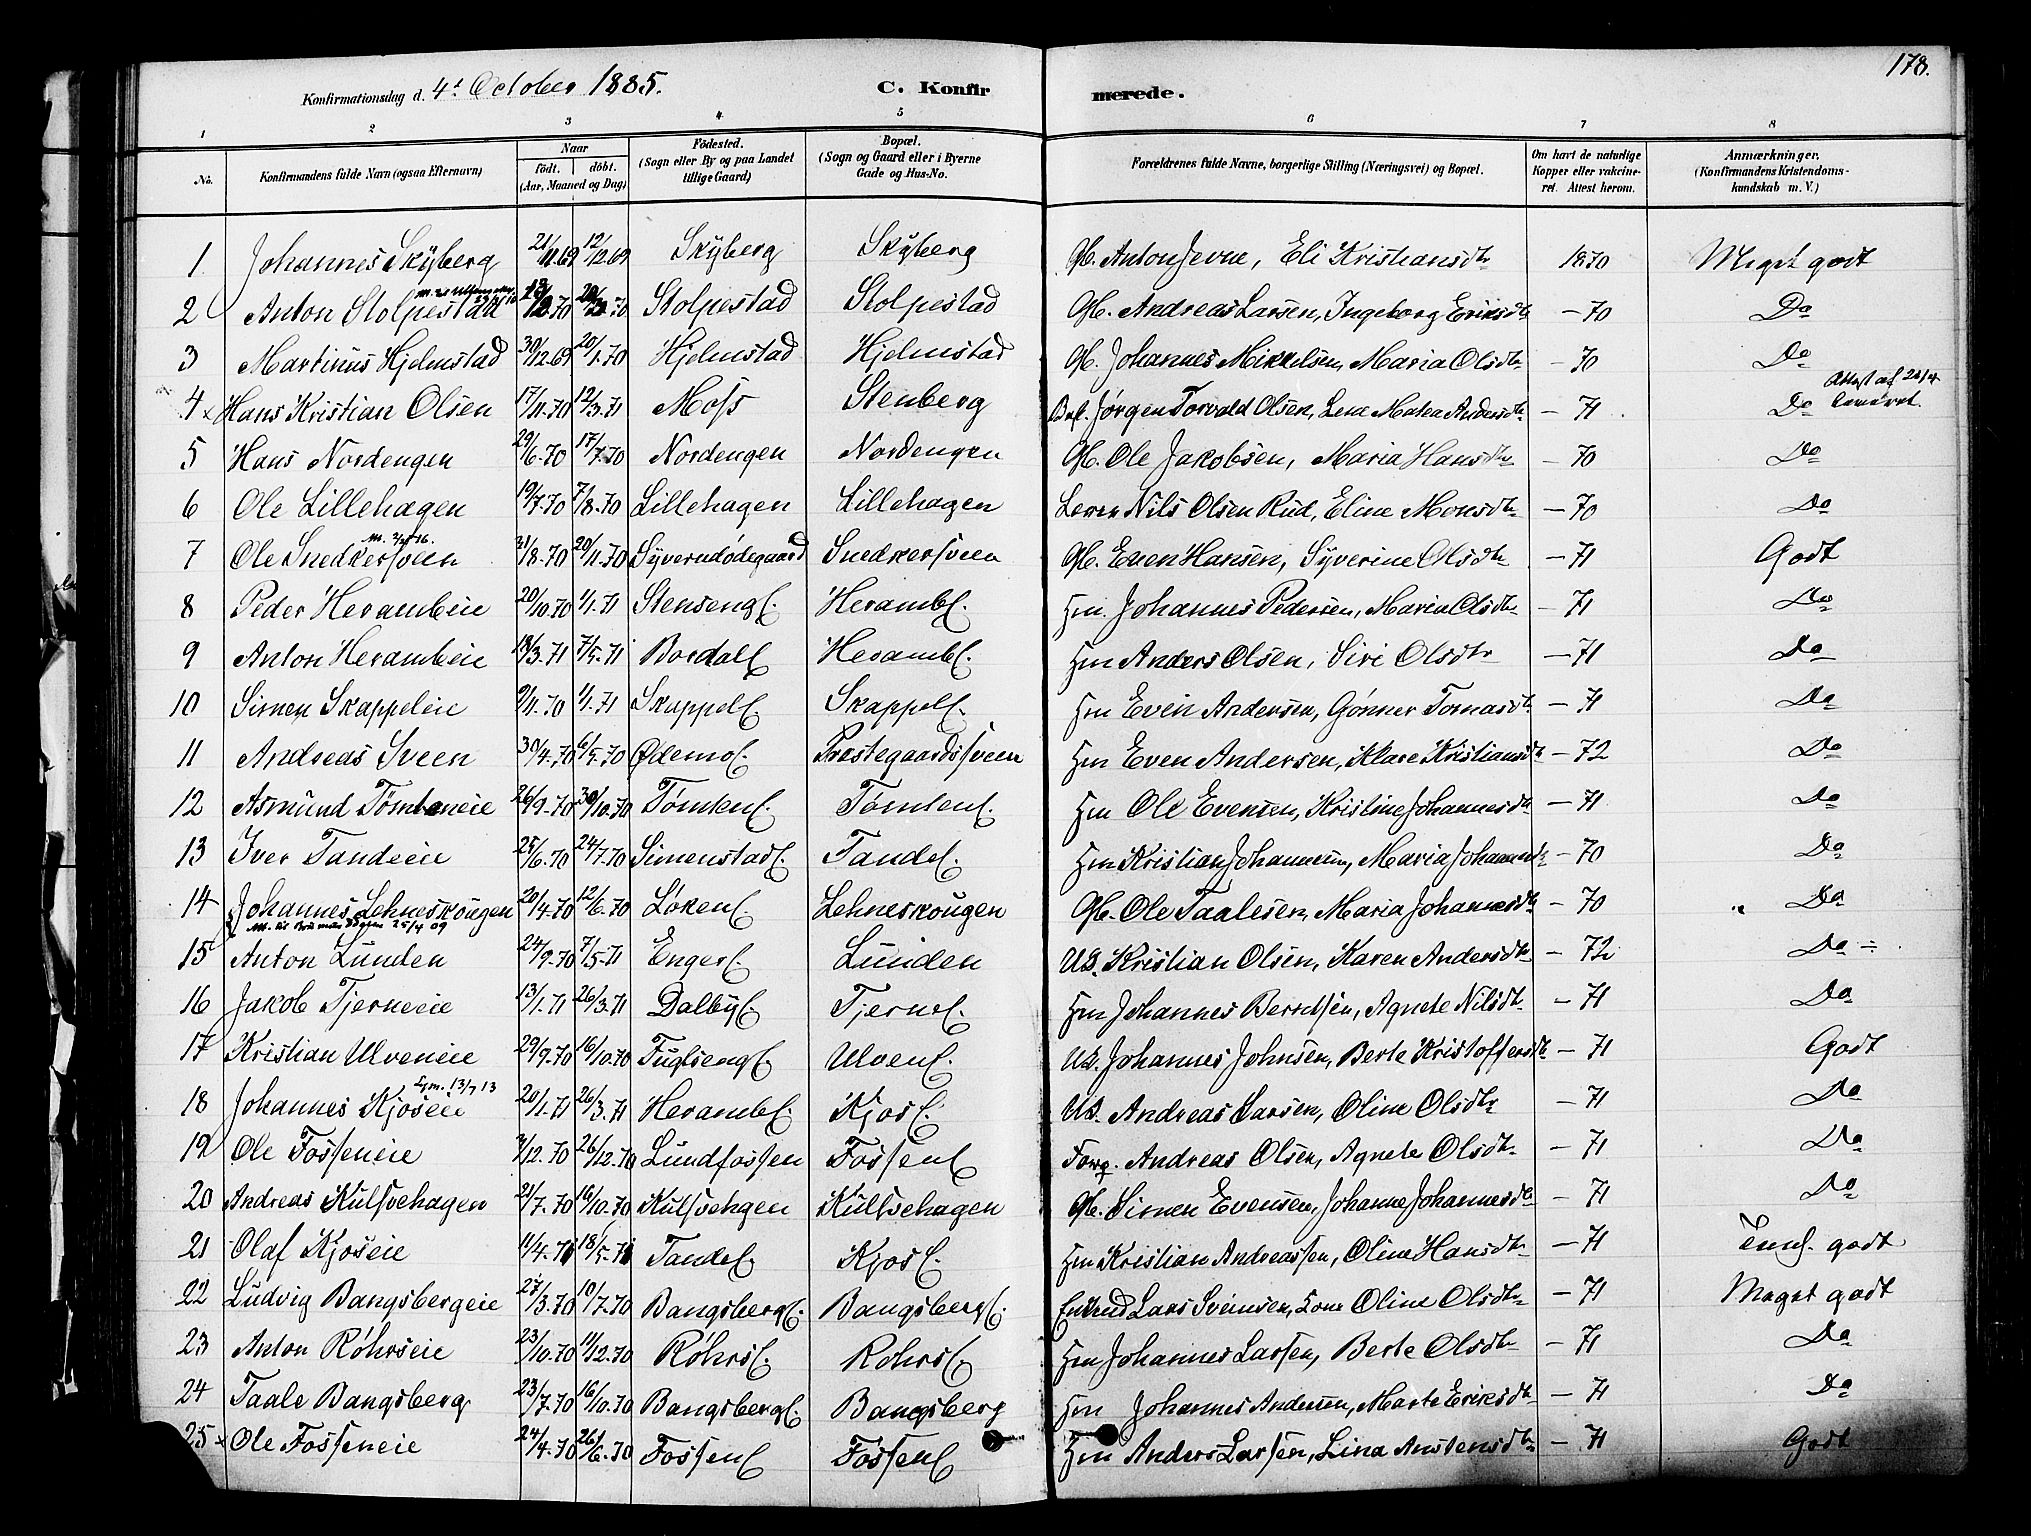 178.
Konfirmationsdag d. 4t October 1885. C. Konfirmerede.
1 2 3 4 5 6 7 8
No. Konfirmandens fulde Navn (ogsaa Efternavn) Naar født. døbt. (Aar, Maaned og Dag) Fødested. (Sogn eller By og paa Landet tillige Gaard) Bopæl. (Sogn og Gaard eller i Byerne Gade og Hus-No. Forældrenes fulde Navne, borgerlige Stilling (Næringsvei) og Bopæl. Om havt de naturlige Kopper eller vakcineret. Attest herom. Anmærkninger. (Konfirmandens Kristendomskundskab m. V.)
1 Johannes Skÿberg 21/11.69 12/12.69 Skÿberg Skÿberg Gb. Anton Jevne, Eli Kristiansdtr 1870 Meget godt
2 Anton Stolpestad Stolpestad Stolpestad Gb. Andreas Larsen, Ingeborg Eriksdtr – 70 Do
3 Martinus Hjelmstad 30/12.69 20/1.70 Hjelmstad Hjelmstad Gb. Johannes Mikkelsen, Maria Olsdtr – 70 Do
4 × Hans Kristian Olsen 17/11.70 12/3.71 Moss Stenberg Jørgen Torvald Olsen, Lene Mathea Andersdtr – 71 Do Attest af 24/4
5 Hans Nordengen 29/6.70 17/7.70 Nordengen Nordengen Gb. Ole Jakobsen, Maria Hansdtr – 70 Do
6 Ole Lillehagen 19/7.70 7/8.70 Lillehagen Lillehagen Nils Olsen Rud, Eline Monsdtr – 70 Do
7 Ole Snedkersveen 31/8.70 20/11.70 Syverudødegaard Snedkersveen Gb. Even Hansen, Syverine Olsdtr – 71 Godt
8 Peder Herambeie 20/10.70 1/1.71 Stensenge. Herambe. Hm. Johannes Pedersen, Maria Olsdtr – 71 Do
9 Anton Herambeie 18/3.71 7/5.71 Bordale Herambe. Hm Anders Olsen, Siri Olsdtr – 71 Do
10 Simen Skappeleie 9/11.70 1/1.71 Skappele Skappele. Hm Even Andersen, Gønner Tomasdtr – 71 Do
11 Andreas Sveen 30/4.70 6/5.70 Ødemoe. Prestegaardssveen Hm Even Andersen, Klare Kristiansdtr – 72 Do
12 Asmund Tømteneie 26/9.70 30/10.70 Tømtene. Tømtene. Hm Ole Evensen, Kristine Johannesdtr – 71 Do
13 Iver Tandeeie 25/6.70 24/7.70 Simenstade. Tandee. Hm Kristian Johannesen, Maria Johannesdtr – 70 Do
14 Johannes Lehneskougen 20/4.70 12/6.70 Løkene Lehneskougen Gb. Ole Taalesen, Maria Johannesdtr – 70 Do
15 Anton Lunden 24/9.70 7/5.71 Engere Lunden Us. Kristian Olsen, Karen Andersdtr – 72 Do
16 Jakob Tjerneie 13/1.71 26/3.71 Dalbye. Tjerne. Hm Johannes Berntsen, Agnete Nilsdtr – 71 Do
17 Kristian Ulveneie 29/9.70 16/10.70 Fuglsenge. Ulvene. Us. Johannes Johnsen, Berte Kristoffersdtr – 71 Godt
18 Johannes Kjoseie 20/1.71 26/3.71 Herambe. Kjose. Us. Andreas Larsen, Oline Olsdtr – 71 Do
19 Ole Fosseneie 3/12.70 26/12.70 Lundfossen Fossene Andreas Olsen, Agnete Olsdtr – 71 Do
20 Andreas Kulsvehagen 21/7.70 16/10.70 Kulsvehgen Kulsvehagen Gb. Simen Evensen, Johanne Johannesdtr – 71 Do
21 Olaf Kjoseie 11/4.71 18/5.71 Tandee. Kjose. Hm Kristian Andreassen, Oline Hansdtr – 71 Temf. godt
22 Ludvig Bangsbergeie 27/3.70 10/7.70 Bangsberge. Bangsberge. Lars Svensen, Oline Olsdtr – 71 Meget godt
23 Anton Røhrseie 23/10.70 11/12.70 Røhrse. Rohrse. Hm Johannes Larsen, Berte Olsdtr – 71 Do
24 Taale Bangsberg 23/7.70 16/10.70 Bangsberge. Bangsberg Hm Johannes Andersen, Marte Eriksdtr – 71 Do
25 × Ole Fosseneie 24/4.70 26/6.70 Fossene Fossene Hm Anders Larsen, Lina Anstensdtr – 71 Godt